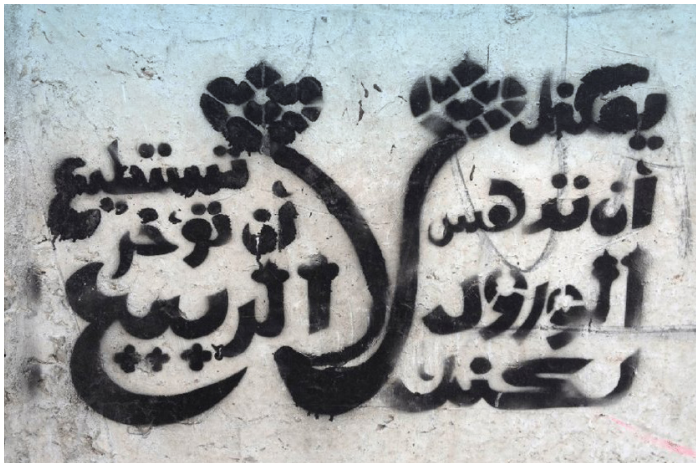 يمكنك
أن تدهس
الورود
لكنك
لا
تستطيع
أن تؤخر
الربيع